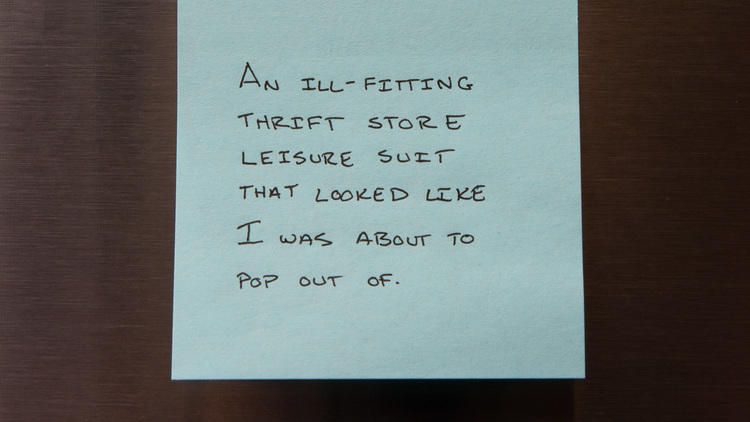 An ILL-FITTING
THRIFT STORE
LEISURE SUIT
THAT LOOKED LIKE
I WAS ABOUT TO
POP OUT OF.